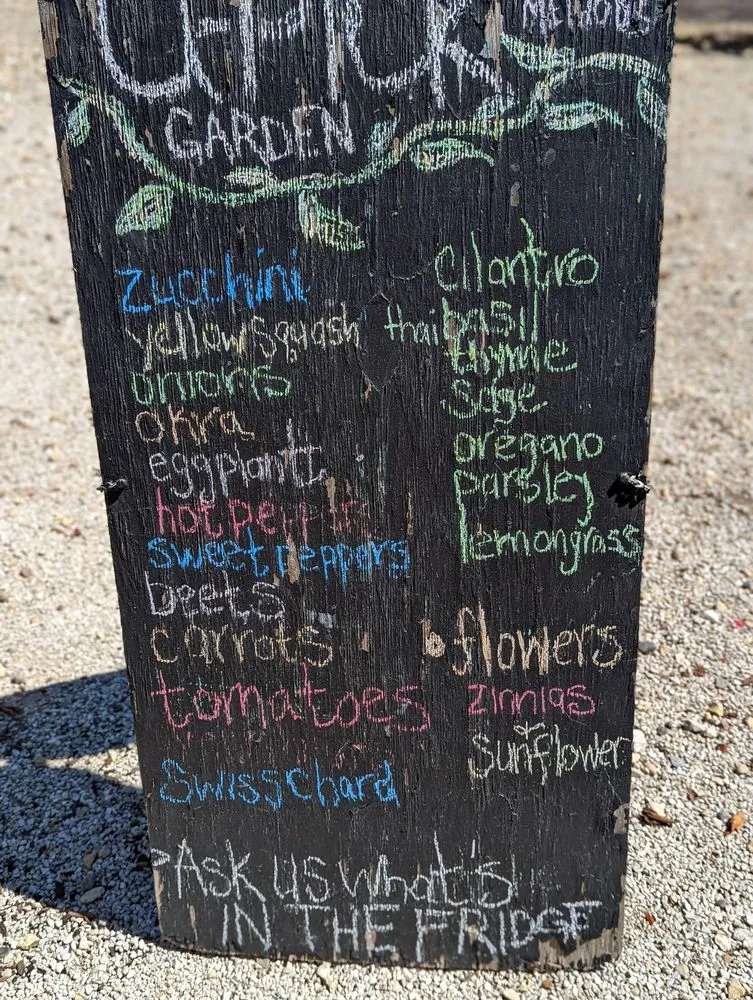 GARDEN
zucchini
yellow squash
onions
okra
eggplant
hot peppers
sweet peppers
beets
carrots
tomatoes
Swiss chard
cilantro
thai basil
thyme
sage
oregano
parsley
lemongrass
flowers
zinnias
Sunflower
Ask us what's
IN THE FRIDGE